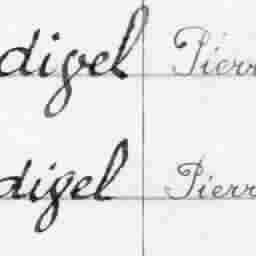 digel Pierr
digel Pierr